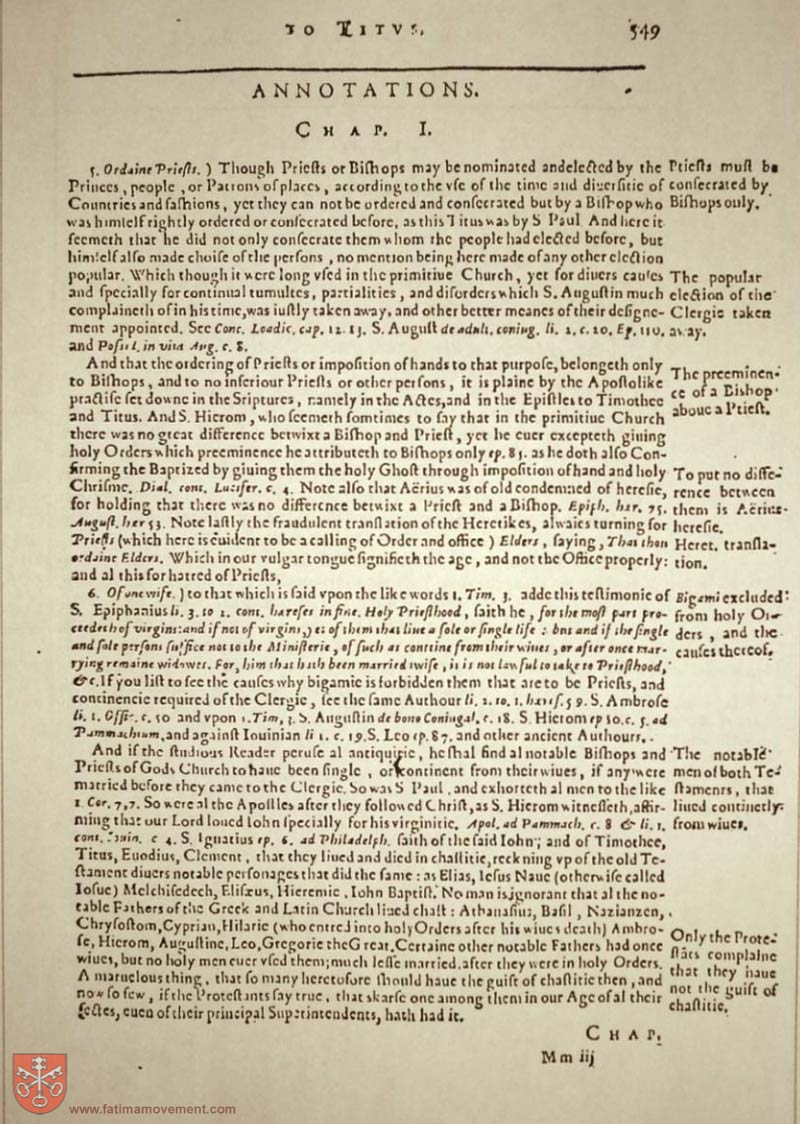 TO TITVS.
549
ANNOTATIONS.
CHAP. I.
5. Ordaine Priests. ) Though Priests or Bishops may be nominated andelected by the
Princes, people, or Patrons of places, according to the vse of the time and diuersitie of
Countries and fashions, yet they can not be ordered and consecrated but by a Bishop who
was himself rightly ordered or consecrated before, as this Titus was by S Paul And here it
seemeth that he did not only consecrate them whom the people had elected before, but
himself also made choise of the persons, no mention being here made of any other election
popular. Which though it were long vsed in the primitiue Church, yet for diuers causes
and specially for continual tumultes, partialities, and disorders which S. Augustin much
complaineth of in his time, was iustly taken away, and other better meanes of their designe-
ment appointed. See Conc. Laodic. cap. 12. 13. S. August de adult. coniug. li. 2. c. 20. Ep. 110.
and Possid. in vita Aug. c. 8.
Priests must be
consecrated by
Bishops only.
The popular
election of the
Clergie taken
away.
And that the ordering of Priests or imposition of hands to that purpose, belongeth only
to Bishops, and to no inferiour Priests or other persons, it is plaine by the Apostolike
practise set downe in the Sriptures, namely in the Actes, and in the Epistles to Timothee
and Titus. And S. Hierom, who seemeth somtimes to say that in the primitiue Church
there was no great difference betwixt a Bishop and Priest, yet he euer excepteth giuing
holy Orders which preeminence he attributeth to Bishops only ep. 85. as he doth also Con-
firming the Baptized by giuing them the holy Ghost through imposition of hand and holy
Chrisme. Dial. cont. Lucifer. c. 4. Note also that Aërius was of old condemned of heresie,
for holding that there was no difference betwixt a Priest and a Bishop. Epiph. har. 75.
August. her 53. Note lastly the fraudulent translation of the Heretikes, alwaies turning for
Priests (which here is euident to be a calling of Order and office) Elders, saying, That thou
ordaine Elders. Which in our vulgar tongue signifieth the age, and not the Office properly:
and al this for hatred of Priests,
The preeminen-
ce of a Bishop
aboue a Priest.
To put no diffe-
rence between
them is Aërius
heresie.
Heret. transla-
tion.
6. Of one wife. ) to that which is said vpon the like words 1. Tim. 3. adde this testimonie of
S. Epiphanius li. 3. to 1. cont. hareses in fine. Holy Priesthood, saith he, for the most part pro-
ceedeth of virgins: and if not of virgins, yet of them that liue a sole or single life : but and if the single
and sole persons suffice not to the Ministerie, of such as conteine from their wiues, or after once mar-
rying remaine widowes. For, him that hath been married twise, it is not lawful to take to Priesthood,
&c. If you list to see the causes why bigamie is forbidden them that are to be Priests, and
continencie required of the Clergie, see the same Authour li. 2. to. 1. haref. 59. S. Ambrose
li. 1. Offic. c. 50 and vpon 1. Tim, 3. S. Augustin de bono Coniugal. c. 18. S. Hierom ep 50. c. 5. ad
Pammachium, and against Iouinian li 1. c. 19. S. Leo ep. 87. and other ancient Authours.
Bigami excluded
from holy Or-
ders, and the
causes thereof.
And if the studious Reader peruse al antiquitie, he shal find al notable Bishops and
Priests of Gods Church to haue been single, or continent from their wiues, if any were
married before they came to the Clergie. So was S Paul, and exhorteth al men to the like
1 Cor. 7,7. So were al the Apostles after they followed Christ, as S. Hierom witnesseth, affir-
ming that our Lord loued Iohn specially for his virginitie. Apol. ad Pammach. c. 8 & li. 1.
cont. Iouin. c 4. S. Ignatius ep. 6. ad Philadelph. saith of the said Iohn; and of Timothee,
Titus, Euodius, Clement, that they liued and died in chastitie, reckning vp of the old Te-
stament diuers notable personages that did the same : as Elias, Iesus Naue (otherwise called
Iosue) Melchisedech, Elisæus, Hieremie, Iohn Baptist. No man is ignorant that al the no-
table Fathers of the Greek and Latin Church liued chast : Athanasius, Basil, Nazianzen,
Chrysostom, Cyprian, Hilarie (who entred into holy Orders after his wiues death) Ambro-
se, Hierom, Augustine, Leo, Gregorie the Great. Certaine other notable Fathers had once
wiues, but no holy men euer vsed them; much lesse married, after they were in holy Orders.
A maruelous thing, that so many heretofore should haue the guift of chastitie then, and
now so few, if the Protestants say true, that skarse one among them in our Age of al their
sectes, euen of their principal Superintendents, hath had it.
The notable
men of both Te-
staments, that
liued continetly
from wiues.
Only the Prote-
stāts complaine
that they haue
not the guift of
chastitie.
CHAP.
Mm iij
www.fatimamovement.com